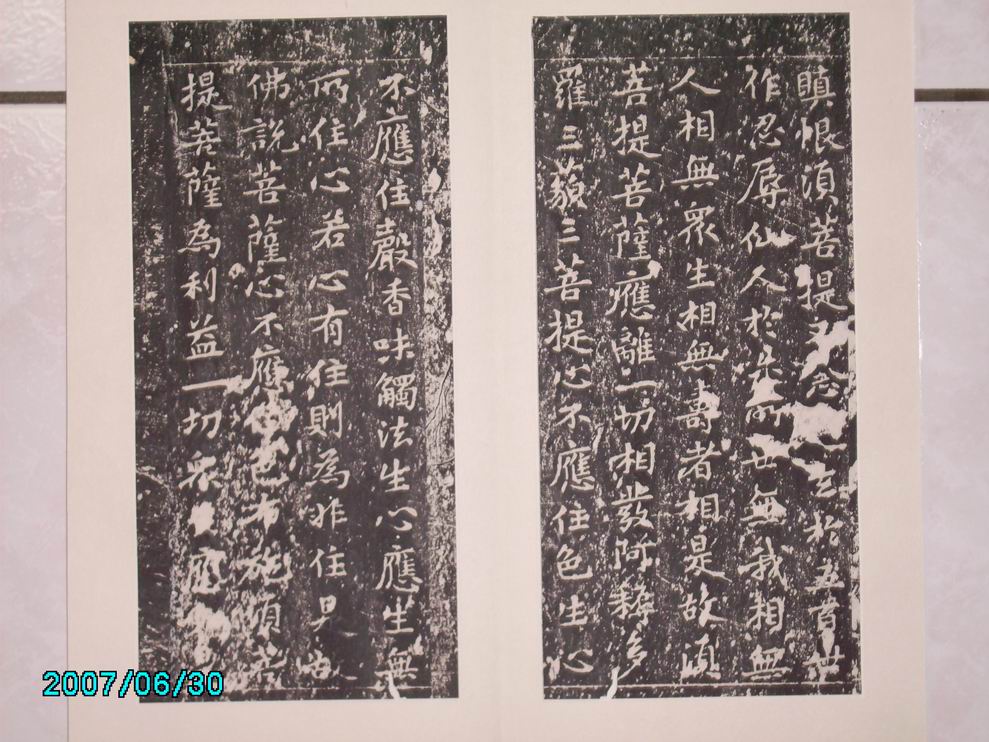 瞋恨須菩提念過去於五百世
作忍辱仙人於爾所世無我相無
人相無眾生相無壽者相是故須
菩提菩薩應離一切相發阿耨多
羅三藐三菩提心不應住色生心
不應住聲香味觸法生心應生無
所住心若心有住則為非住是故
佛說菩薩心不應住色布施須菩
提菩薩為利益一切眾生應
2007/06/30